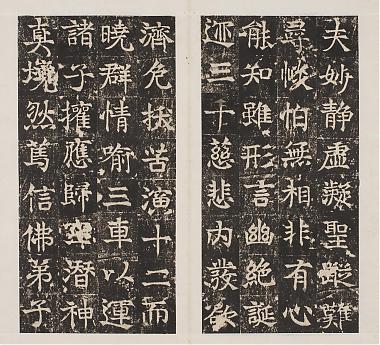 夫妙静虛凝聖蹤難
尋惔怕無相非有心
能知雖形言幽絕誕
迹三千慈悲内發欲
濟危拔苦演十二而
曉群情喻三車以運
諸子權應歸潛神
真境然篤信佛弟子